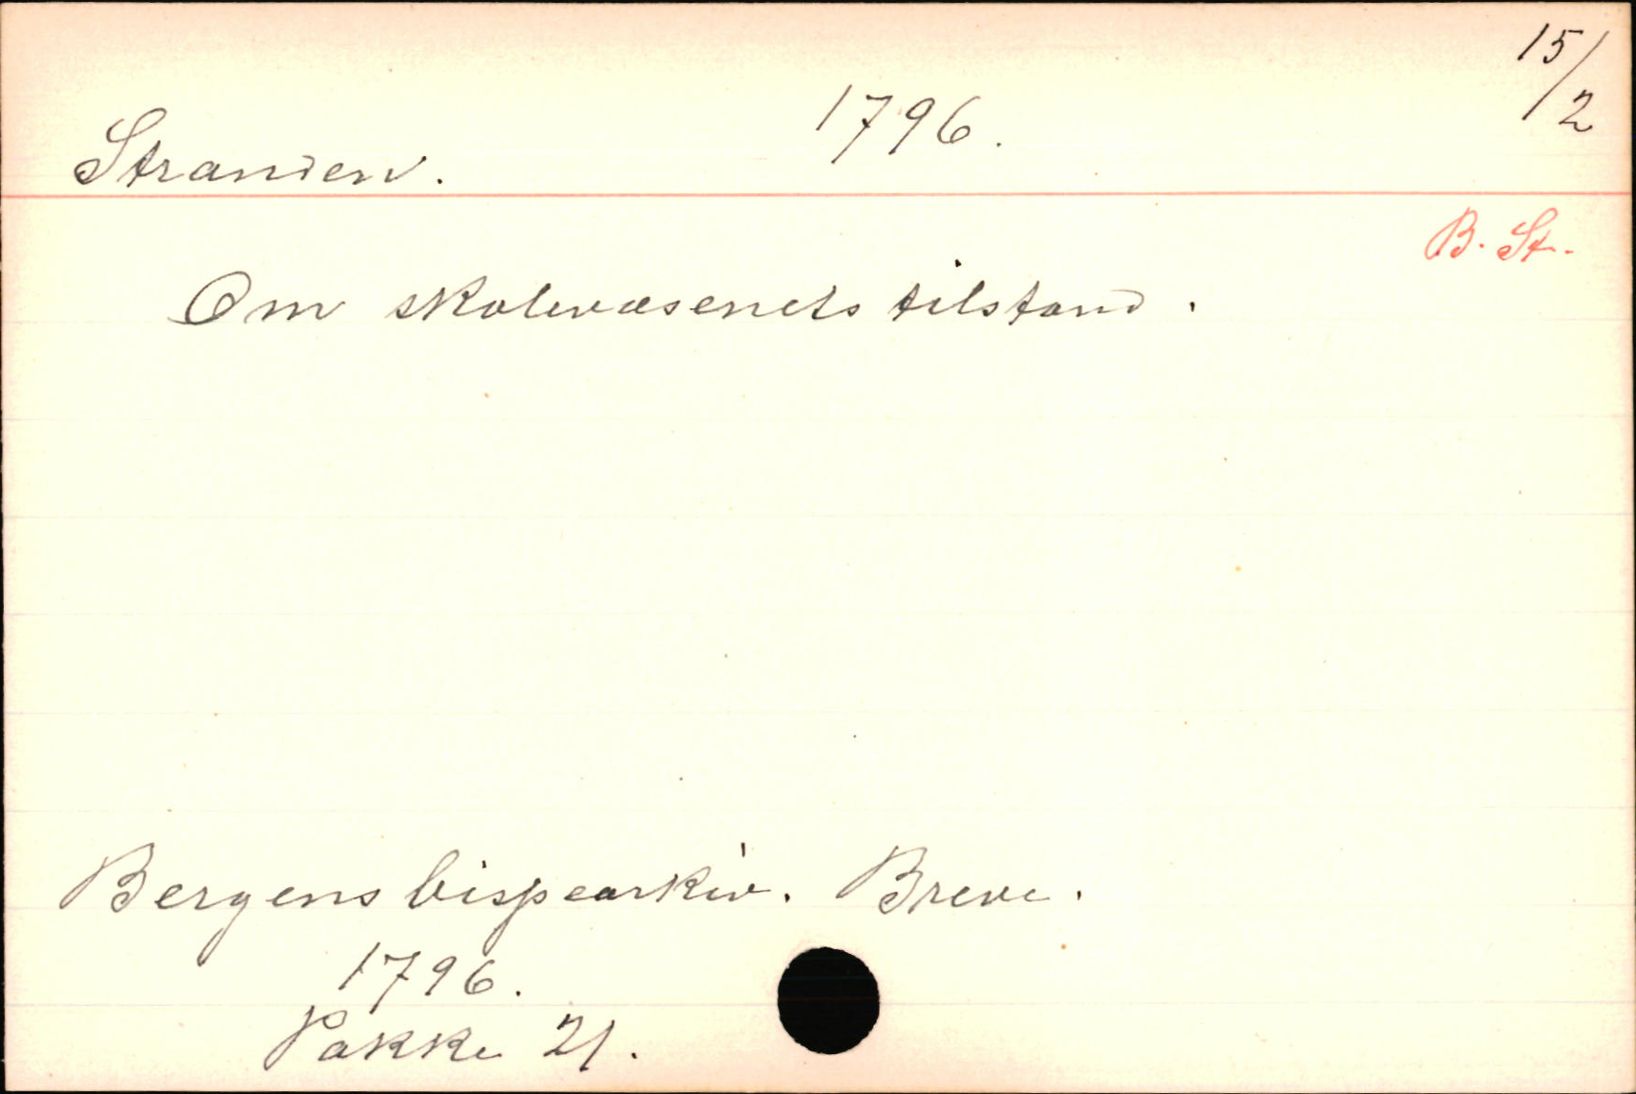 15/2
1796.
Stranden.
B. St.
Om skolevæsenets tilstand.
Bergens bispearkiv. Breve.
1796.
Pakke 21.